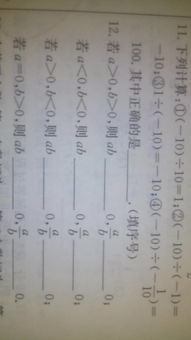 11. 下列计算:①(-10)÷10=1;②(-10)÷(-1)=
-10;③1÷(-10)=-10;④(-10)÷(-1/10)=
100. 其中正确的是______.(填序号)
12. 若a>0,b>0,则ab______0,a/b______0;
若a<0,b<0,则ab______0,a/b______0;
若a>0,b<0,则ab______0,a/b______0;
若a=0,b>0,则ab______0,a/b______0.